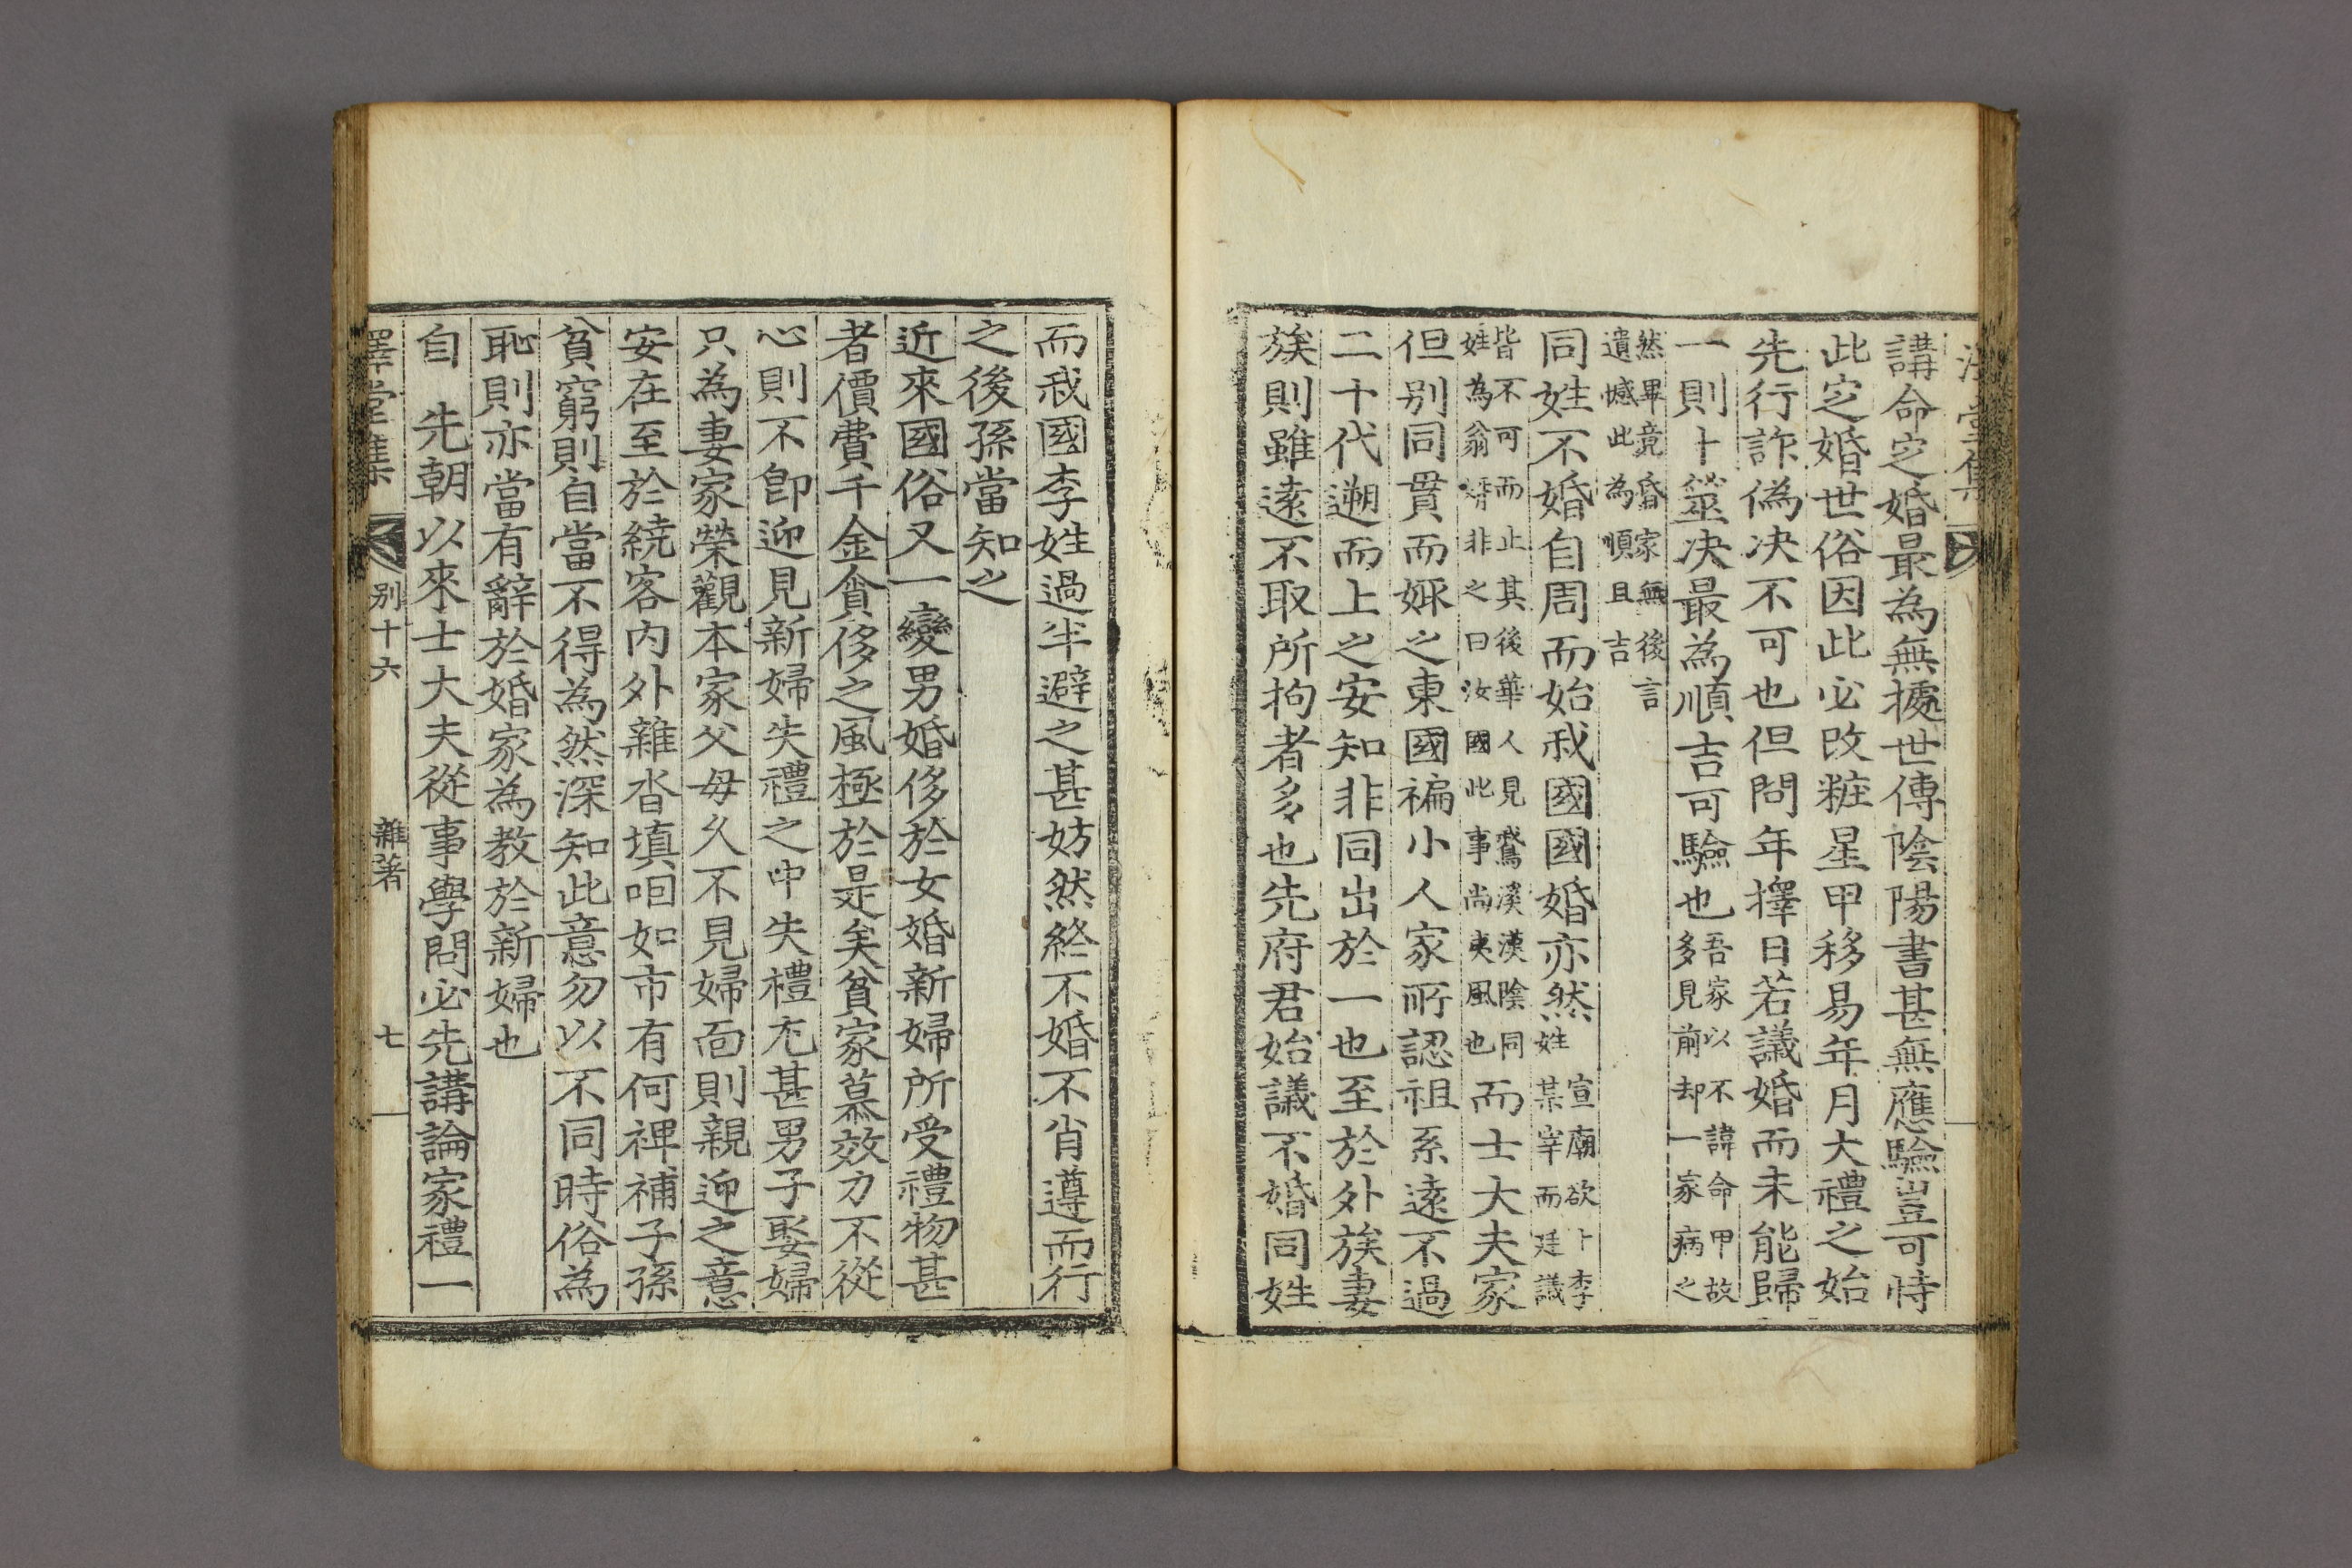 講命定婚最為無據世傳陰陽書甚無應驗豈可恃
此定婚世俗因此必改粧星甲移易年月大禮之始
先行詐偽决不可也但問年擇日若議婚而未能歸
一則卜筮决最為順吉可驗也
吾家以不諱命甲故
多見前却一家病之
然畢竟昏家無後言
遺憾此為順且吉
同姓不婚自周而始我國國婚亦然
宣廟欲卜李
姓某宰而廷議
皆不可而止其後華人見鵞溪漢陰同
姓為翁婿非之曰汝國此事尚夷風也
而士大夫家
但别同貫而娶之東國褊小人家所認祖系遠不過
二十代遡而上之安知非同出於一也至於外族妻
族則雖遠不取所拘者多也先府君始議不婚同姓
而我國李姓過半避之甚妨然終不婚不肖遵而行
之後孫當知之
近來國俗又一變男婚侈於女婚新婦所受禮物甚
者價費千金貪侈之風極於是矣貧家慕效力不從
心則不卽迎見新婦失禮之中失禮尤甚男子娶婦
只為妻家榮觀本家父母久不見婦面則親迎之意
安在至於繞客內外雜沓填咽如市有何裨補子孫
貧窮則自當不得為然深知此意勿以不同時俗為
恥則亦當有辭於婚家為教於新婦也
自　先朝以來士大夫從事學問必先講論家禮一
澤堂集　别十六　雜著　七